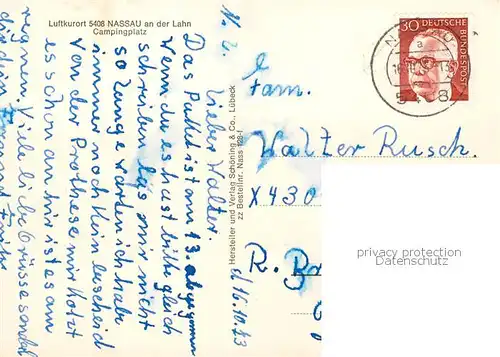 Luftkurort 5408 NASSAU an der Lahn
Campingplatz
d 16.10.73
Lieber Walter.
Das Paket ist am 13. abgegangen
wenn du es hast bitte gleich
schreiben lass mir nicht
so lange warten ich habe
immer noch kein bescheid
von der Prothese mir kotzt
es schon an hir ist es am
regnen. Viele liebe Grüsse sendet
Hersteller und Verlag Schöning & Co., Lübeck
zz Bestellnr. Nass 128-f
30 DEUTSCHE BUNDESPOST
Fam.
Walter Rusch.
X430
R.
privacy protection
Datenschutz